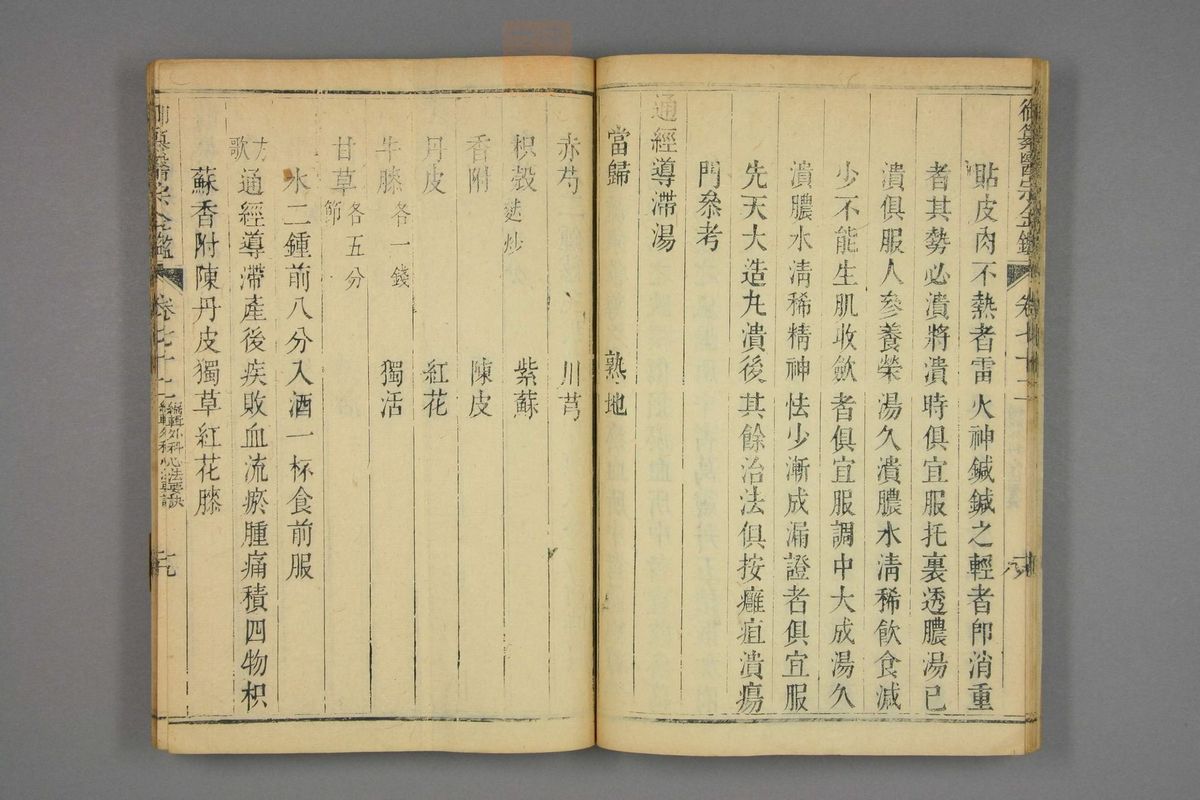 貼皮肉不熱者雷火神鍼鍼之輕者卽消重
者其勢必潰將潰時俱宜服托裏透膿湯已
潰俱服人參養榮湯久潰膿水清稀飲食減
少不能生肌收歛者俱宜服調中大成湯久
潰膿水清稀精神怯少漸成漏證者俱宜服
先天大造丸潰後其餘治法俱按癰疽潰瘍
門叅考
通經導滯湯
當歸 熟地
赤芍 川芎
枳殼 麩炒 紫蘇
香附 陳皮
丹皮 紅花
牛膝 各一錢 獨活
甘草 節 各五分
水二鍾前八分入酒一杯食前服
方歌 通經導滯產後疾敗血流瘀腫痛積四物枳
蘇香附陳丹皮獨草紅花膝
御纂醫宗金鑑 卷七十二 編輯外科心法要訣